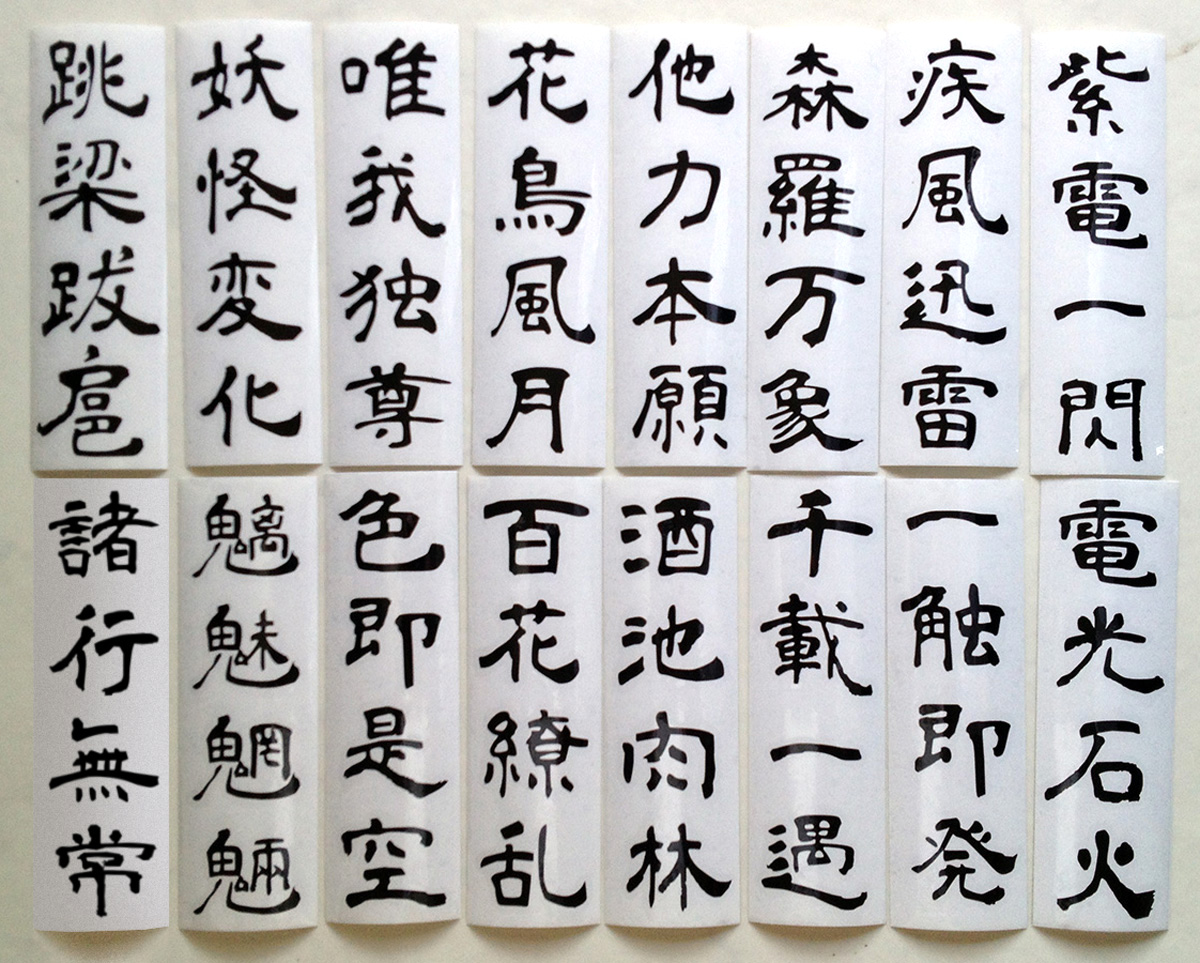 紫電一閃
疾風迅雷
森羅万象
他力本願
花鳥風月
唯我独尊
妖怪変化
跳梁跋扈
電光石火
一触即発
千載一遇
酒池肉林
百花繚乱
色即是空
魑魅魍魎
諸行無常